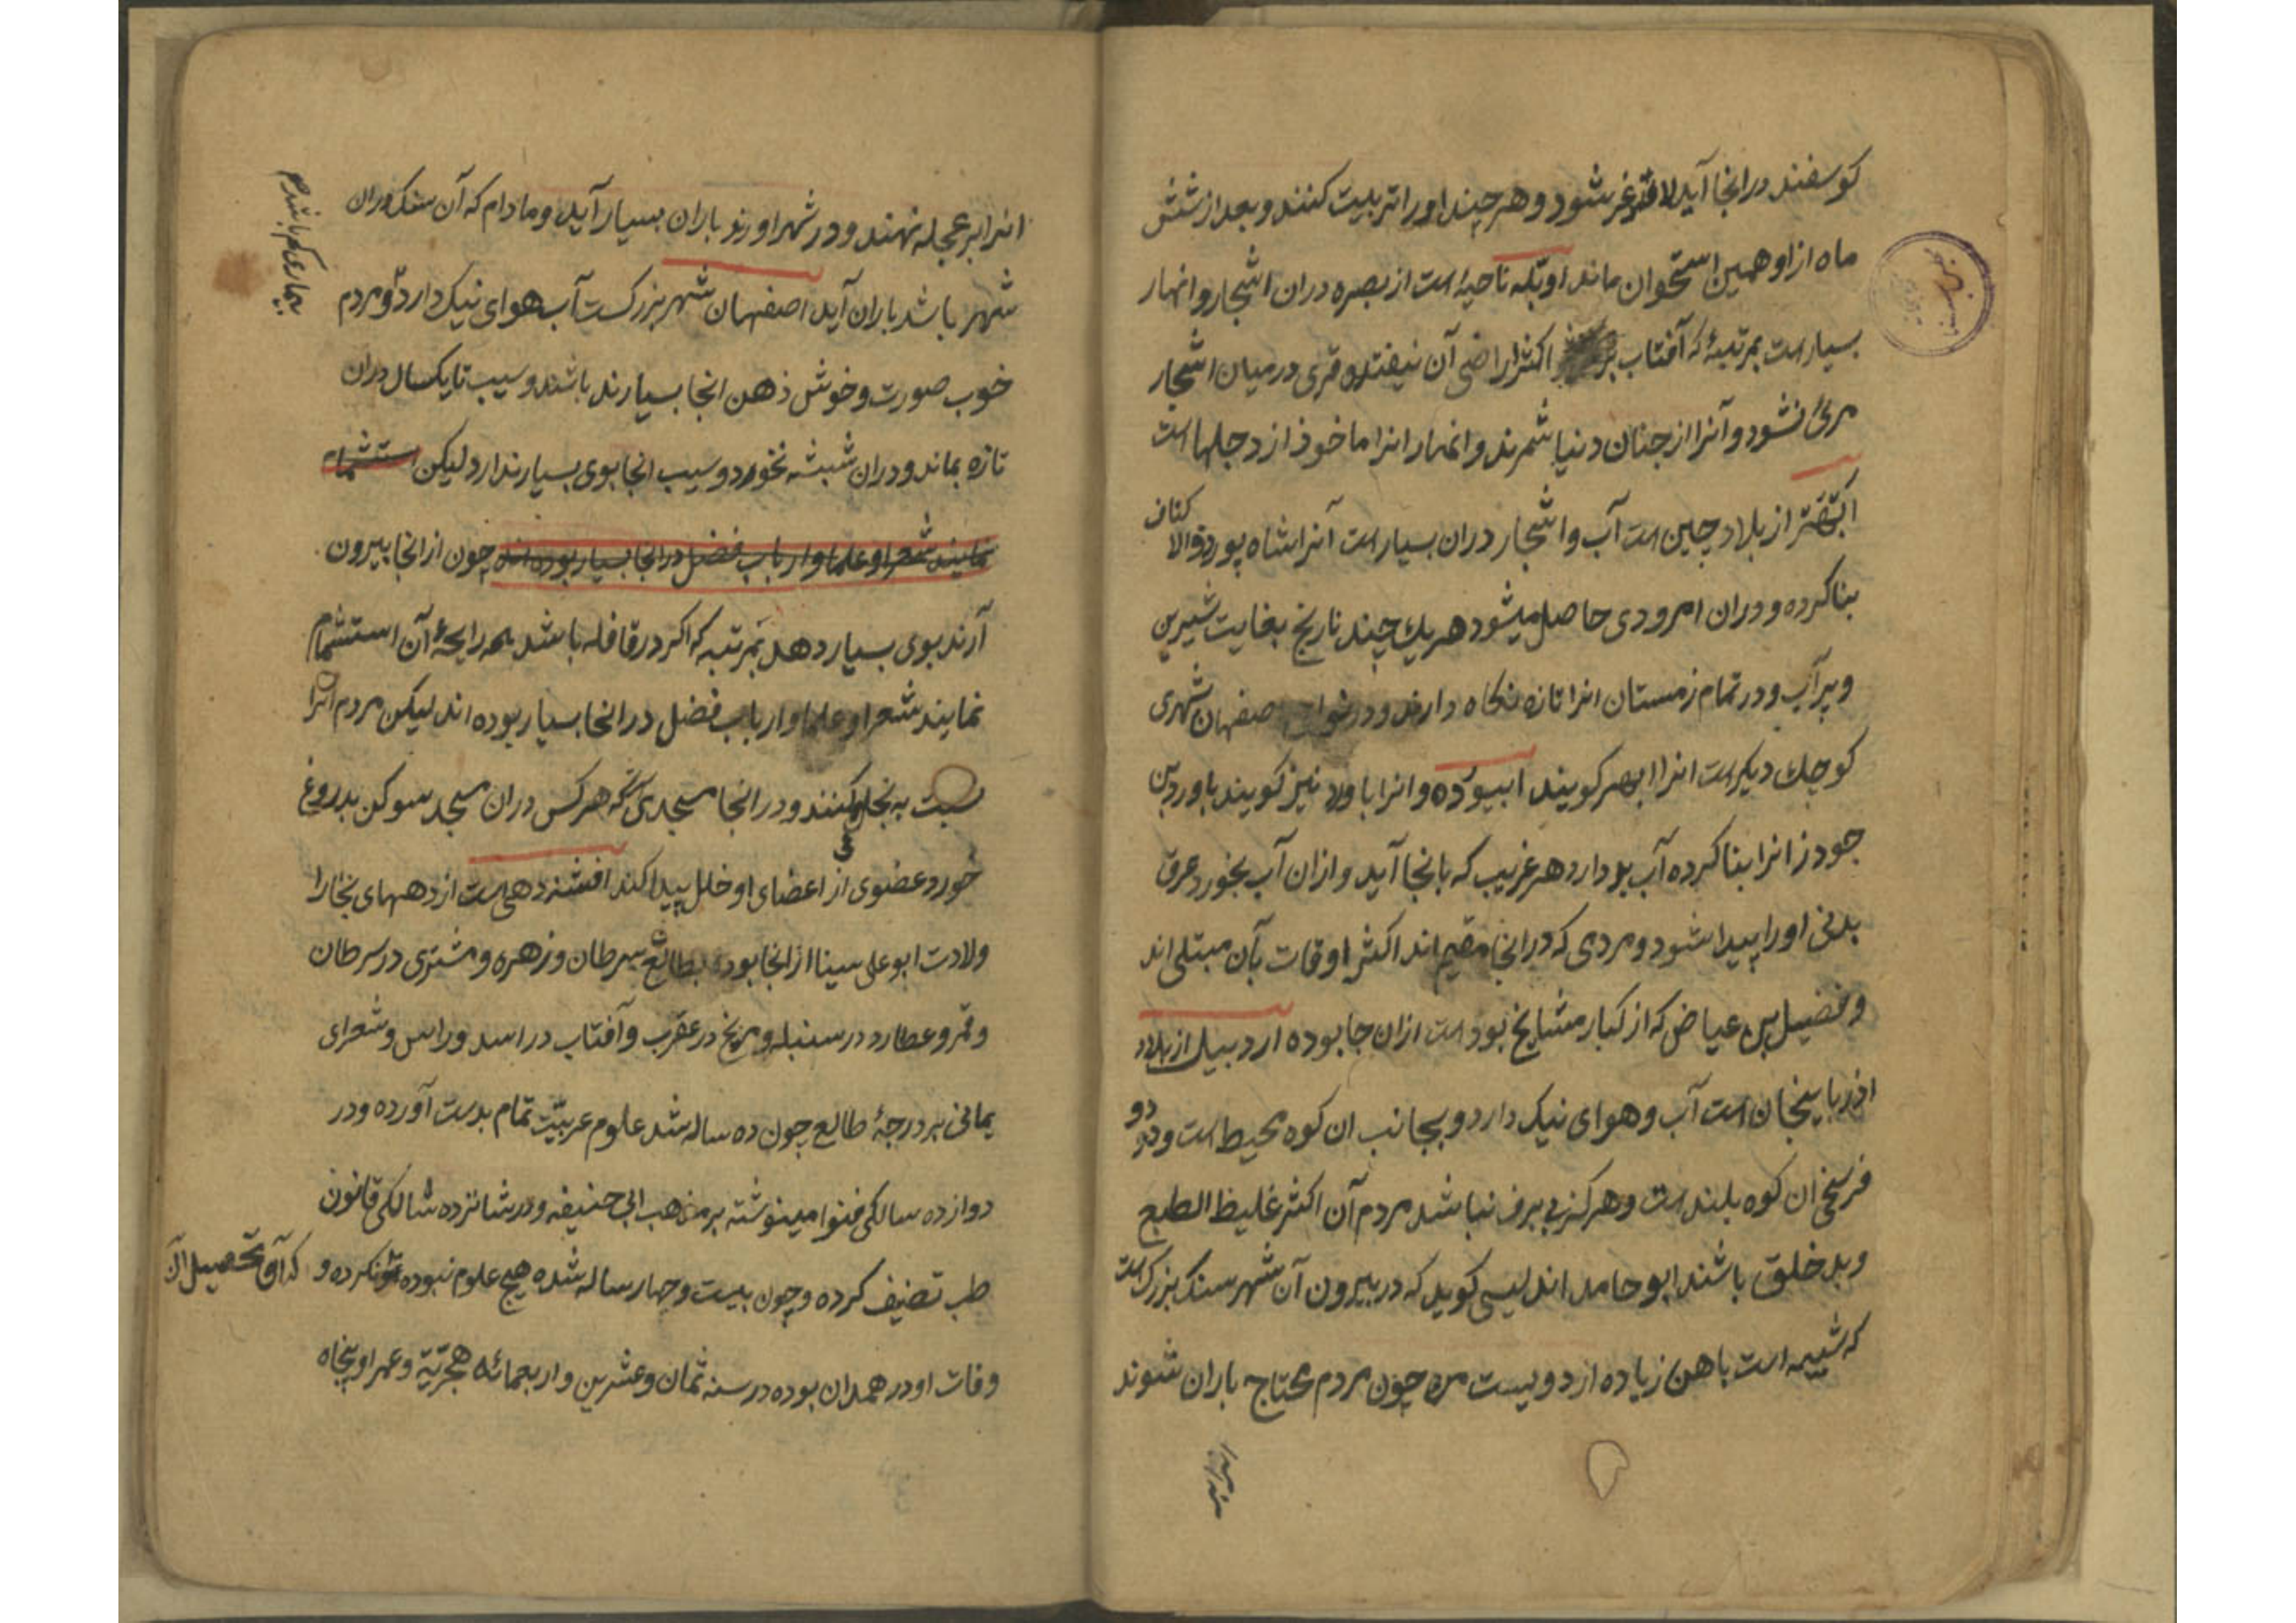 کوسفند در انجا آید لاغر شود و هر چند او را تربیت کنند و بعد از شش
ماه از او همین استخوان ماند اوبّله ناحیهٔ است از بصره دران اشجار و انهار
بسیار است بمرتبهٔ که آفتاب بر اکثر اراضی آن نیفتد و قری در میان اشجار
مرئ نشود و آنرا از جنان دنیا شمرند و انهار انرا ماخوذ از دجلها است
از بلاد چین است آب و اشجار دران بسیار است آنرا شاه پور ذوالا
کتاف
بنا کرده و دران امرودی حاصل میشود هریك چند نارنج بغایت شیرین
و پر آب و در تمام زمستان انرا تازه نکاه دارند و در اصفهان شهری
کوچك دیکر است انرا ابهر کویند ابیورده و انرا باورد نیز کویند باورد بن
جودرز انرا بنا کرده آب بد دارد هر غریب که بانجا آید و ازان آب بخورد عرق
بدنی او را پیدا شود و مردمی که در انجا مقیم اند اکثر اوقات بآن مبتلی اند
و فضیل بن عیاض که از کبار مشایخ بود است ازان جا بوده اردبیل از بلاد
اذربایجان است آب و هوای نیک دارد و بجانب ان کوه محیط است و در
دو
فرسخی ان کوه بلند است و هرکز بی برف نباشد مردم آن اکثر غلیظ الطبع
و بد خلق باشند ابو حامد اندلیسی کوید که در بیرون آن شهر سنک بزرک است
که شبیهه است باهن زیاده از دویست من چون مردم محتاج باران شوند
انرا بر عجله نهند و در شهر اورند باران بسیار آید و مادام که آن سنک دران
شهر باشد باران آید اصفهان شهر بزرکست آب هوای نیک دارد و مردم
بیماری کم باشد
خوب صورت و خوش ذهن انجا بسیارند باشند و سیب تا یکسال دران
تازه بماند و دران شبشه نخورد و سیب انجا بوی بسیار ندارد لیکن استشمام
نمایند شعرا و علما و ارباب فضل در انجا بسیار بوده اند چون از انجا بیرون
آرند بوی بسیار دهد بمرتبه که اکر در قافله باشد همه رایحهٔ آن استشمام
نمایند شعرا و علما و ارباب فضل در انجا بسیار بوده اند لیکن مردم انرا
نسبت به بخل کنند و در انجا مسجدی که هر کس دران مسجد سوکن بدروغ
خورد عضوی از اعضای او خلل پیدا کند افشنه دهی است از دههای بخارا
ولادت ابو علی سینا از انجا بوده بطالع سرطان و زهره و مشتری در سرطان
و قمر و عطارد در سنبله و مریخ در عقرب و آفتاب در اسد و راس و شعرای
یمانی بر درجهٔ طالع چون ده ساله شد علوم عربیّت تمام بدست آورده و در
دوازده سالکی فتوا مینوشته بر مذهب ابی حنیفه و در شانزده سالکی قانون
طب تصنیف کرده و چون بیست و چهار ساله شده هیچ علوم نبوده که آن تحصیل نکرده و
وفات او در همدان بوده در سنه ثمان و عشرین و اربعمائه هجریّه و عمر او پنجاه